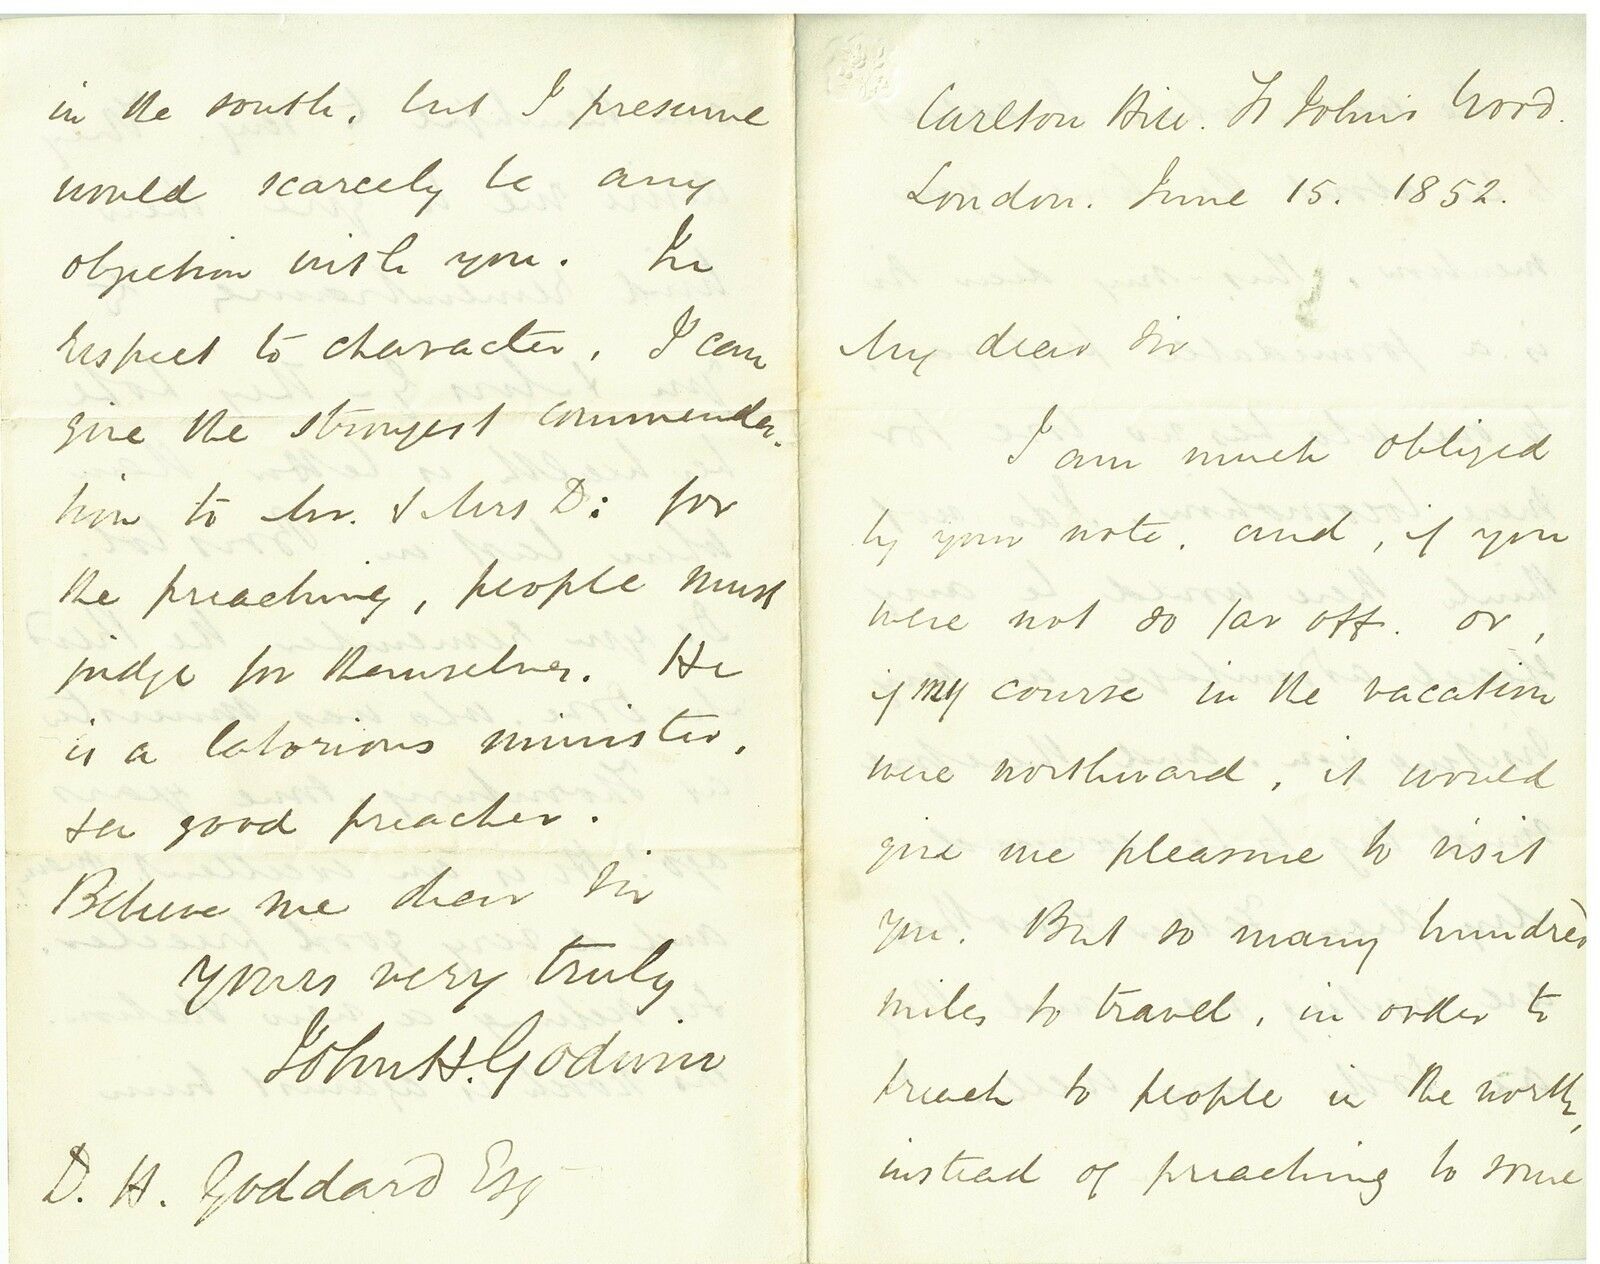 Carlton Hill. St John's Wood.
London. June 15. 1852.
My dear Sir
I am much obliged
by your note. and, if you
were not so far off. or,
if my course in the vacation
were northward, it would
give me pleasure to visit
you. But so many hundred
miles to travel, in order to
preach to people in the north,
instead of preaching to some
in the south, but I presume
would scarcely be any
objection with you. In
respect to character, I can
give the strongest commenda-
tion to Mr. & Mrs D: for
the preaching, people must
judge for themselves. He
is a laborious minister,
& a good preacher.
Believe me dear Sir
yours very truly
John H. Godwin
D. H. Goddard Esq